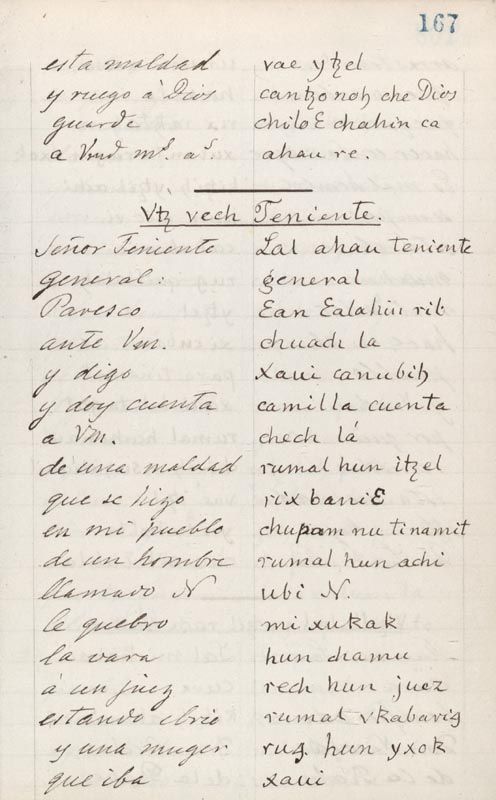 167
esta maldad vae ytzel
y ruego à Dios cantzonoh che Dios
guarde chiloƐ chahin ca
a Vmd ms. as. ahau re.
Vtz vech Teniente.
Señor Teniente Lal ahau teniente
general: general
Paresco Ɛan Ɛalahin rib
ante Vm. chuach la
y digo xaui canubih
y doy cuenta camilla cuenta
a Vm. chech lá
de una maldad rumal hun itzel
que se hizo rix baniƐ
en mi pueblo chupam nu tinamit
de un hombre rumal hun achi
llamado N ubi N.
le quebro mi xukak
la vara hun chamu
á un juez rech hun juez
estando ebrio rumat vkabaris
y una muger rus hun yxok
que iba xaui